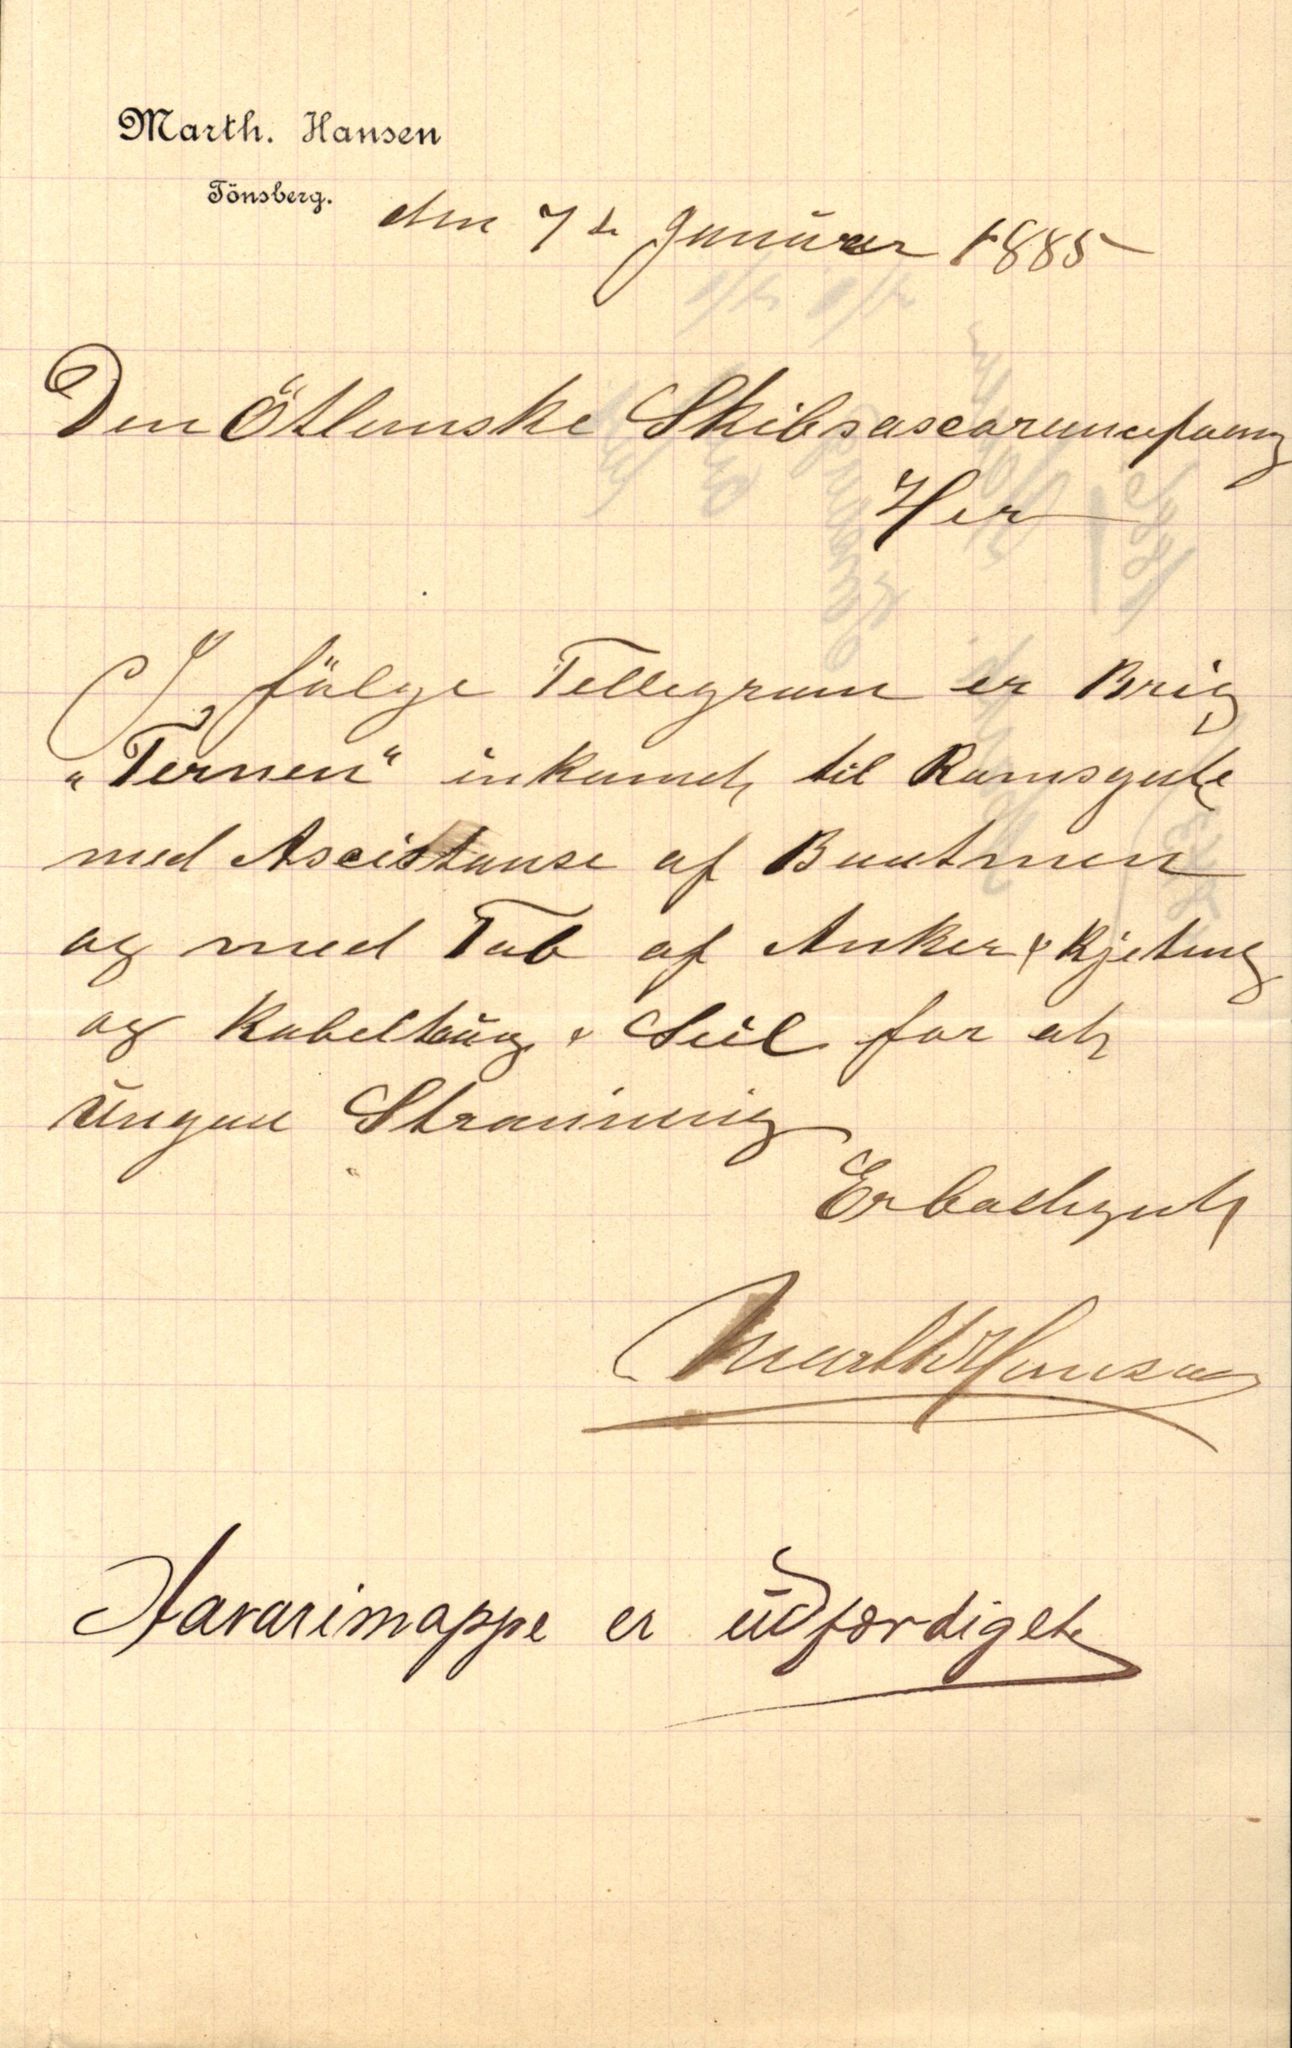 Marth. Hansen
Tönsberg.
den 7de Januar 1885
Den Östlanske Skibsascoranceforng
Her
I fölge Tellegram er Brig
"Ternen" inkamet til Ramsgate
med Ascistanse af Baatmen
og med Tab af Anker & Kjeting
og Kabeltaug & Seil for at
ungaa Stranning
Erbødigst
Marth Hansen
Havarimappe er udfærdiget